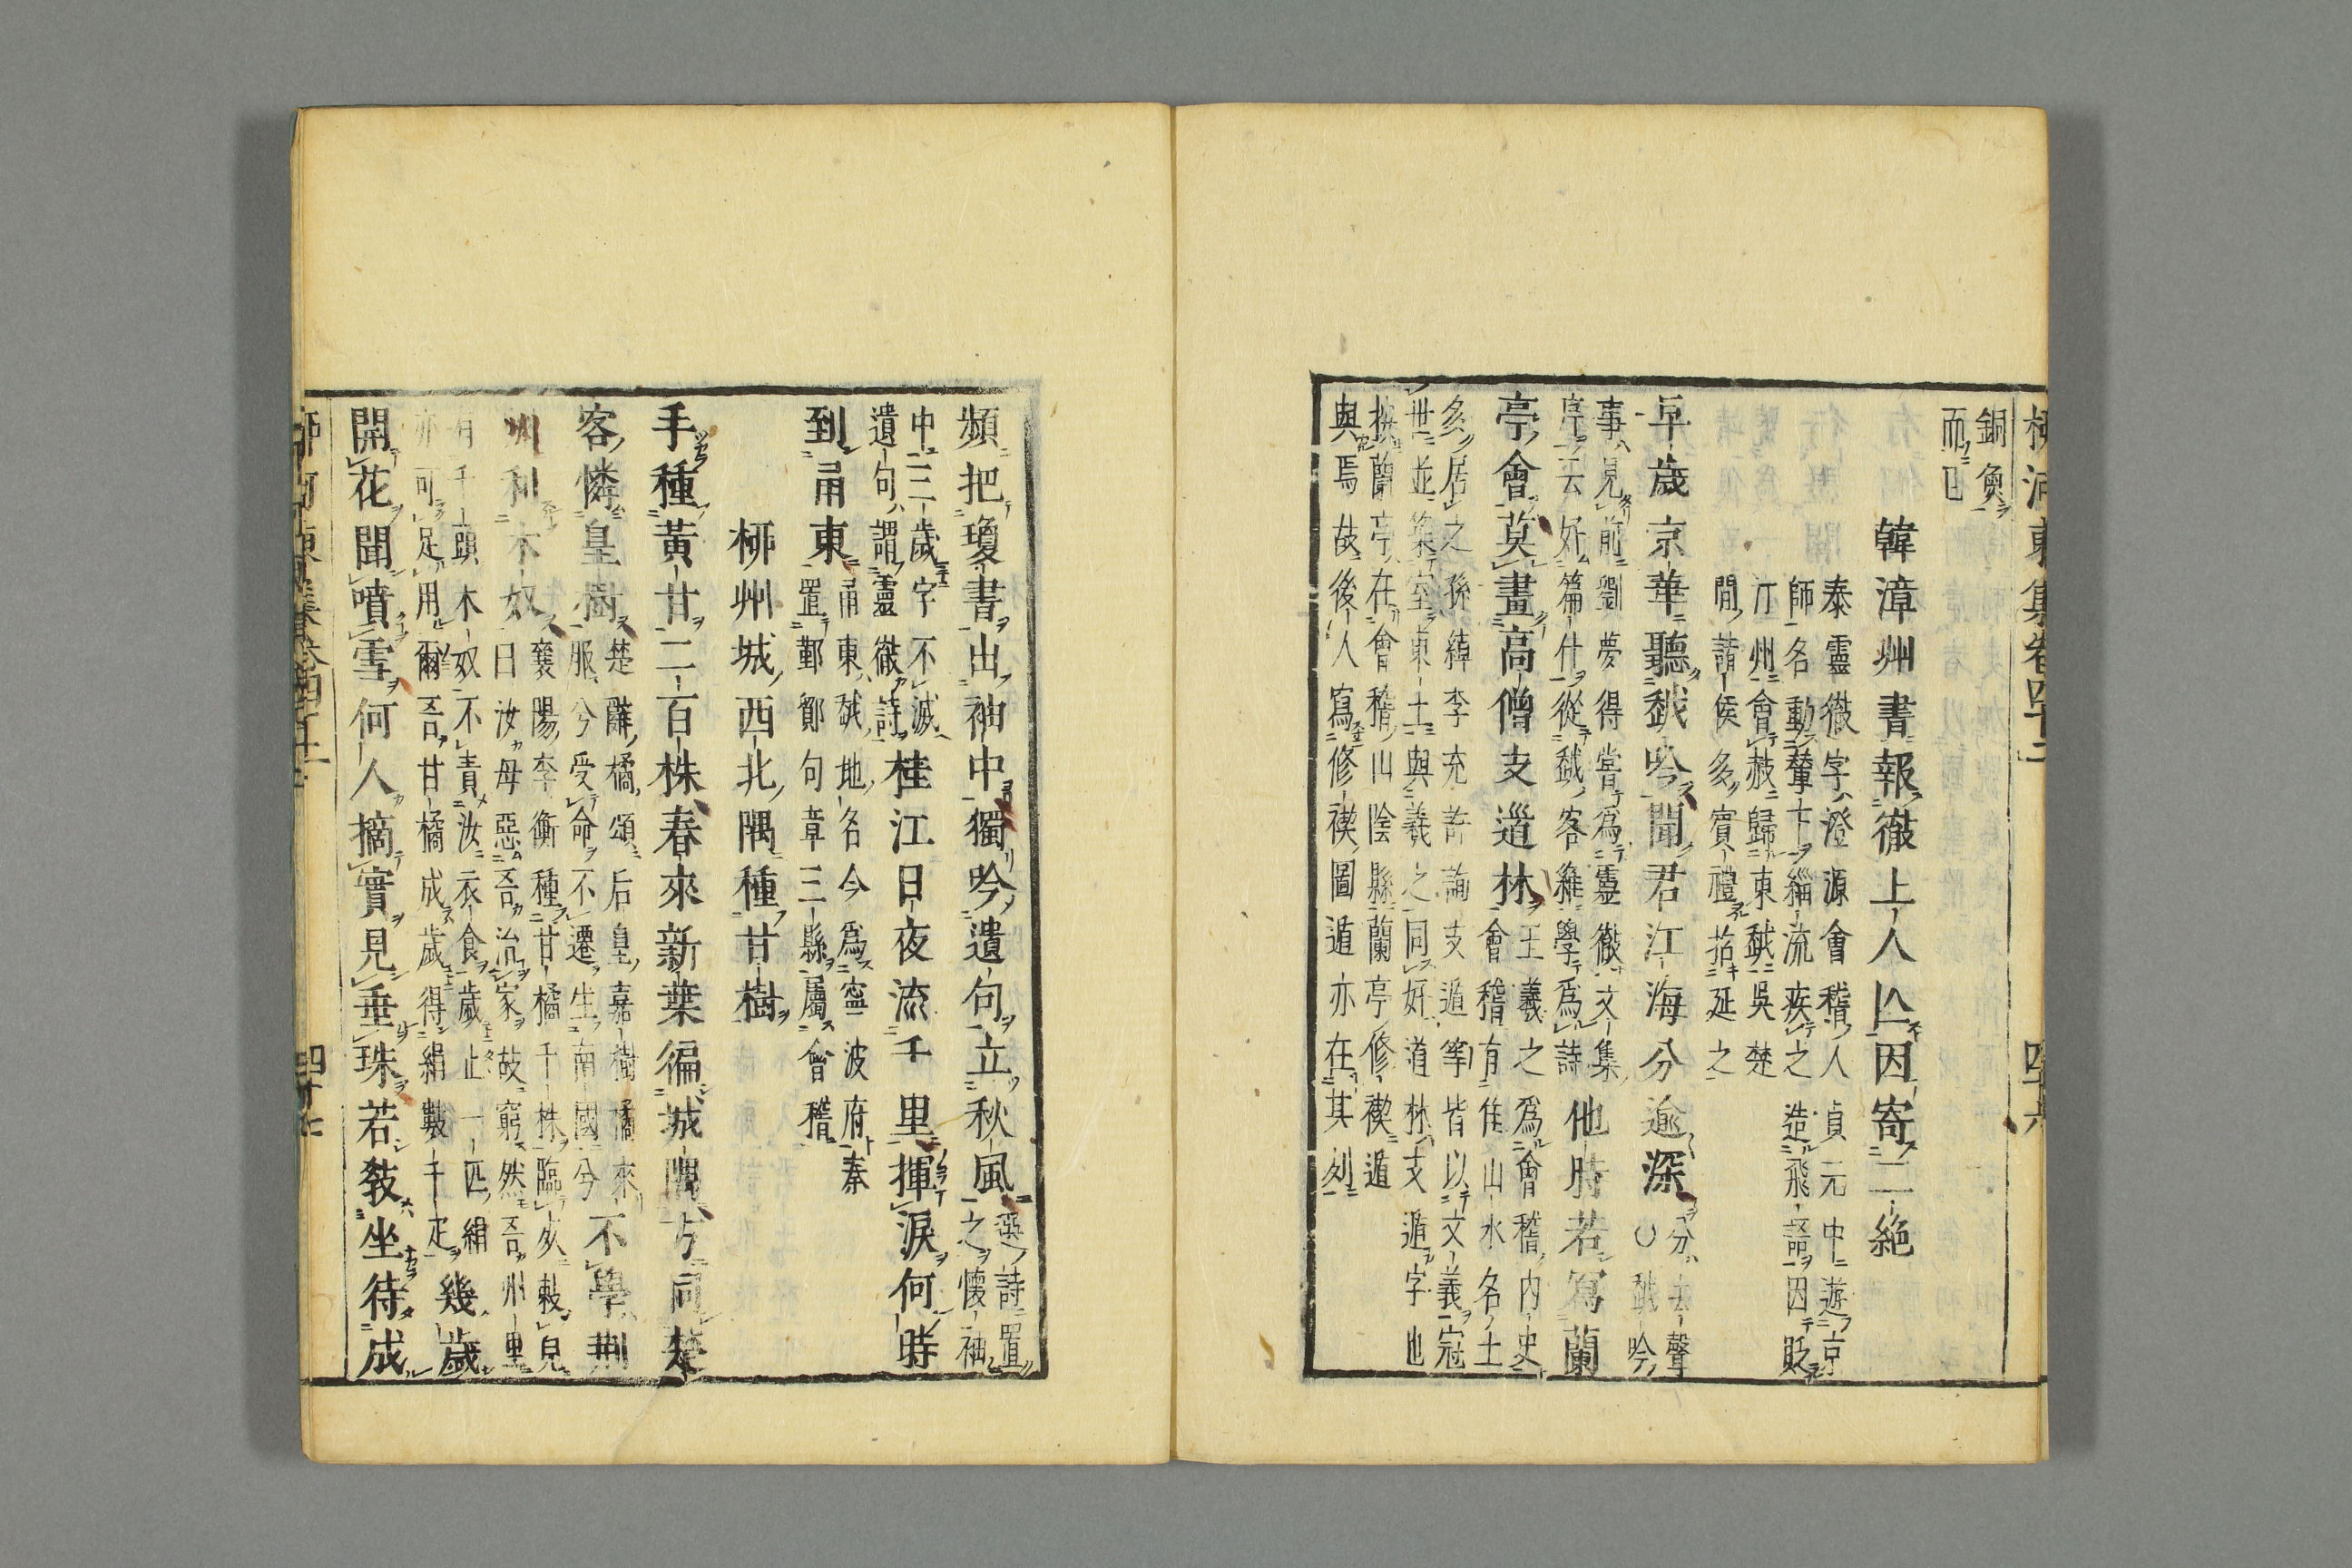 柳河東集卷四十二
四十六
銅奐
而曰
韓漳州書報徹上人亾因寄二絶
泰靈徹字澄源會稽人貞元中遊京
師名動輦下緇流疾之造飛語因貶
汀州會赦歸東越吳楚
閒諸侯多賓禮招延之
早歲京華聽越吟聞君江海分逾深
分去聲
○越吟
事見前劉夢得嘗爲靈徹文集
序云好篇什從越客維學爲詩
他時若寫蘭
亭會莫畫高僧支遁林
王羲之爲會稽内史
會稽有佳山水名士
多居之孫綽李充許詢支遁等皆以文義冠
世並築室東土與羲之同好道林支遁字也
按蘭亭在會稽山陰縣蘭亭修禊遁
與焉故後人寫修禊圖遁亦在其列
頻把瓊書出袖中獨吟遺句立秋風
選詩置
之懷袖
中三歲字不滅
遺句謂靈徹詩
桂江日夜流千里揮淚何時
到甬東
甬東越地名今爲寧波府秦
置鄞鄮句章三縣屬會稽
柳州城西北隅種甘樹
手種黃甘二百株春來新葉徧城隅方同楚
客憐皇樹
楚辭橘頌后皇嘉樹橘來
服兮受命不遷生南國兮
不學荆
州利木奴
襄陽李衡種甘橘千株臨死敕兒
曰汝母惡吾治家故窮然吾州里
有千頭木奴不責汝衣食歲止一匹絹
亦可足用爾吾甘橘成歲得絹數千疋
幾歲
開花聞噴雪何人摘實見垂珠若敎坐待成
柳河東集卷四十二
四十七